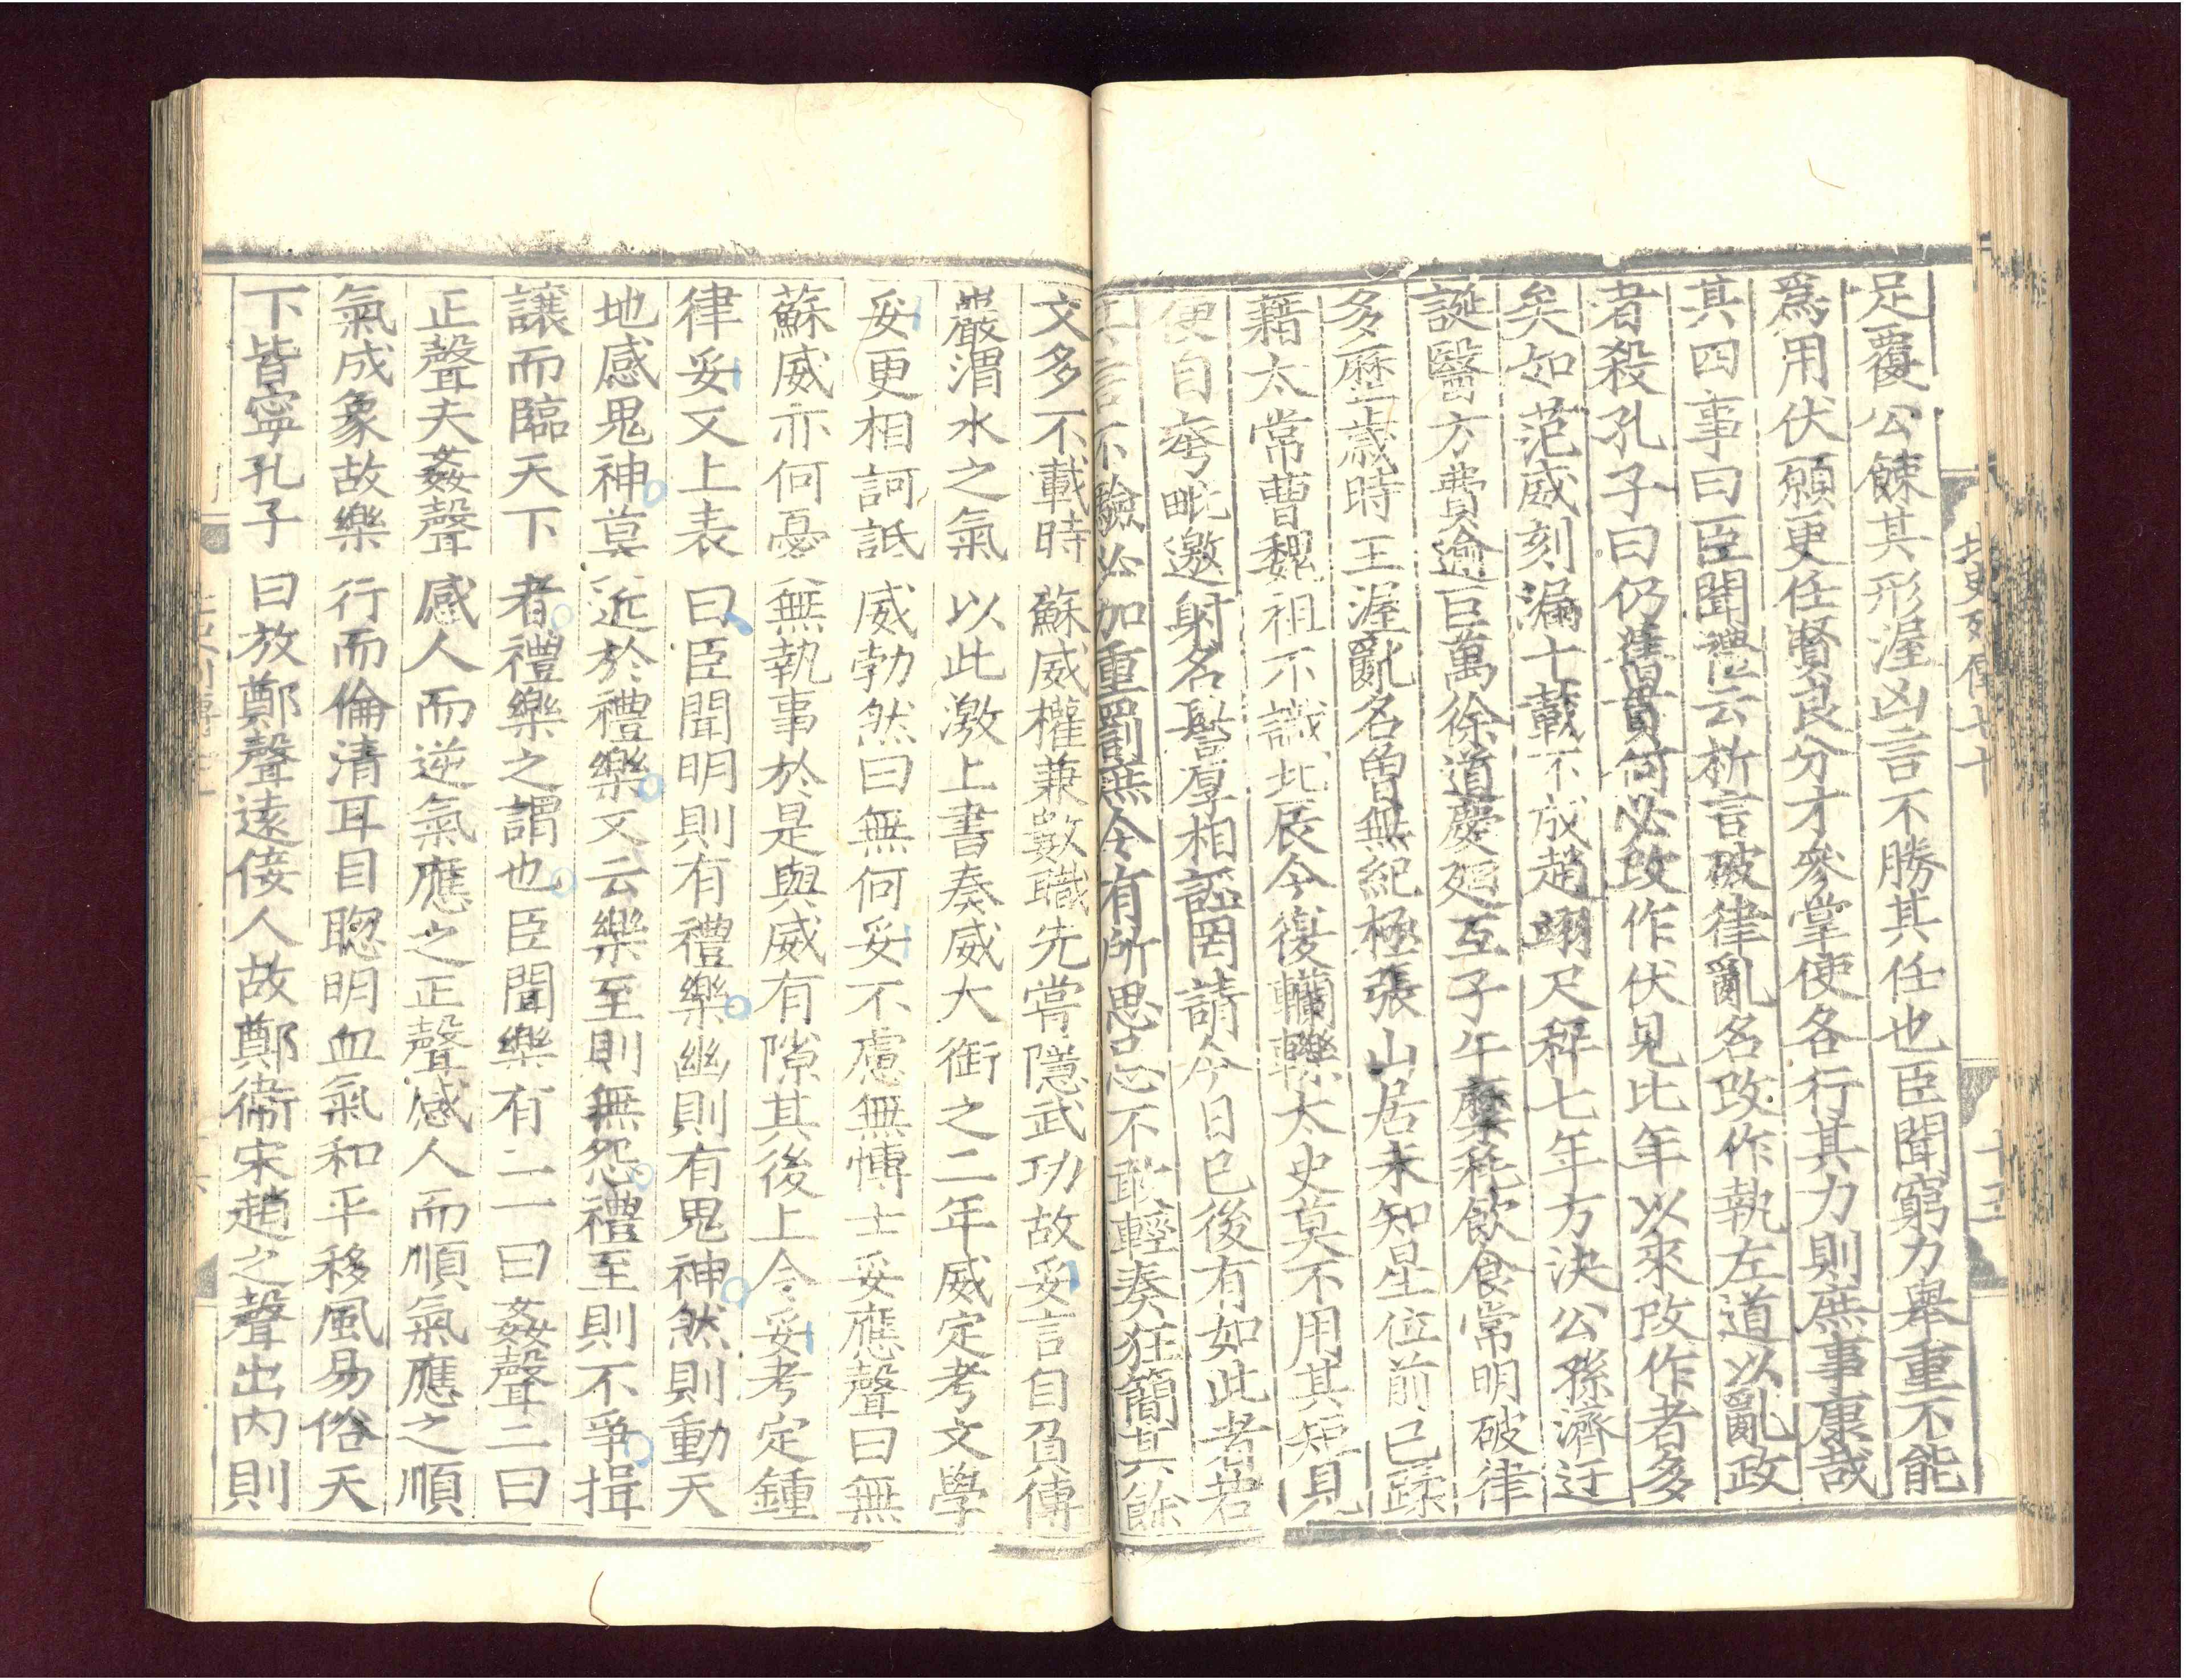 足覆公餗其形渥凶言不勝其任也臣聞窮力舉重不能
爲用伏願更任賢良分才參掌使各行其力則庶事康哉
其四事曰臣聞禮云析言破律亂名改作執左道以亂政
者殺孔子曰仍舊貫何必改作伏見比年以來改作者多
矣如范威刻漏十載不成趙翊尺秤七年方決公孫濟迂
誕醫方費逾巨萬徐道慶廻互子午糜耗飲食常明破律
多歷歲時王渥亂名曾無紀極張山居未知星位前已蹂
藉太常曹魏祖不識北辰今復轥轢太史莫不用其短見
便自夸毗邀射名譽厚相誣罔請今日已後有如此者若
其言不驗必加重罰庶令有所畏忌不敢輕奏狂簡其餘
文多不載時蘇威權兼數職先嘗隱武功故妥言自負傅
巖渭水之氣以此激上書奏威大銜之二年威定考文學
妥更相訶詆威勃然曰無何妥不慮無愽士妥應聲曰無
蘇威亦何憂無執事於是與威有隙其後上令妥考定鍾
律妥又上表曰臣聞明則有禮樂幽則有鬼神然則動天
地感鬼神莫近於禮樂又云樂至則無怨禮至則不爭揖
讓而臨天下者禮樂之謂也臣聞樂有二一曰姦聲二曰
正聲夫姦聲感人而逆氣應之正聲感人而順氣應之順
氣成象故樂行而倫清耳目聦明血氣和平移風易俗天
下皆寧孔子曰放鄭聲遠佞人故鄭衞宋趙之聲出内則